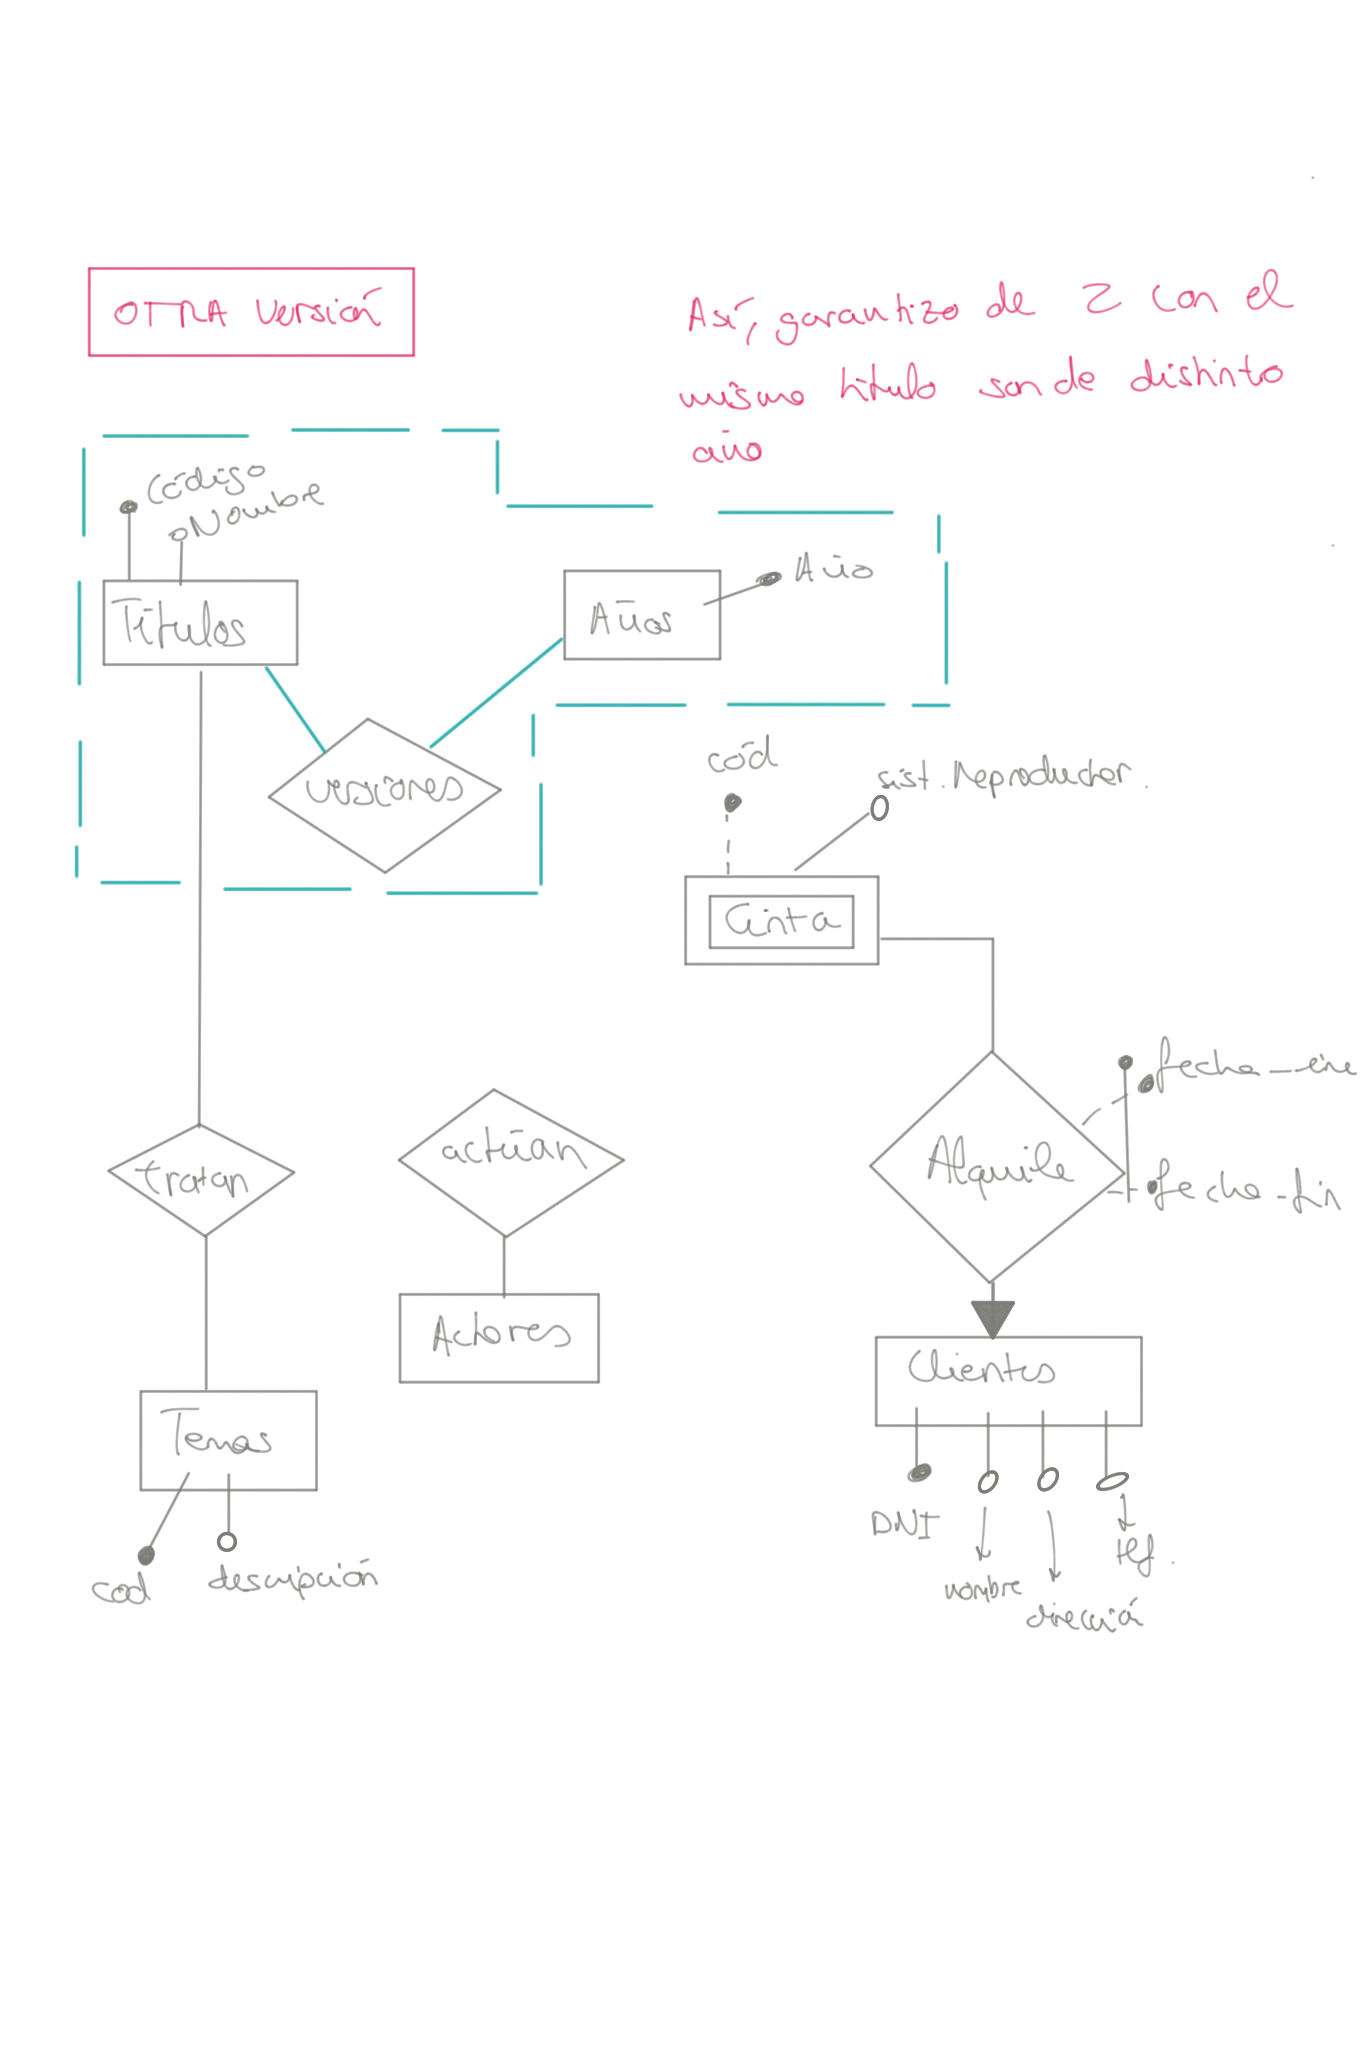 OTRA Versión
Así, garantizo de 2 con el
mismo título son de distinto
año
Código
Nombre
Títulos
Años
Año
versiones
cód
sist. Reproductor.
Cinta
fecha_ini
Alquile
fecha_fin
tratan
actúan
Actores
Clientes
Temas
cod
descripción
DNI
nombre
dirección
tlf.